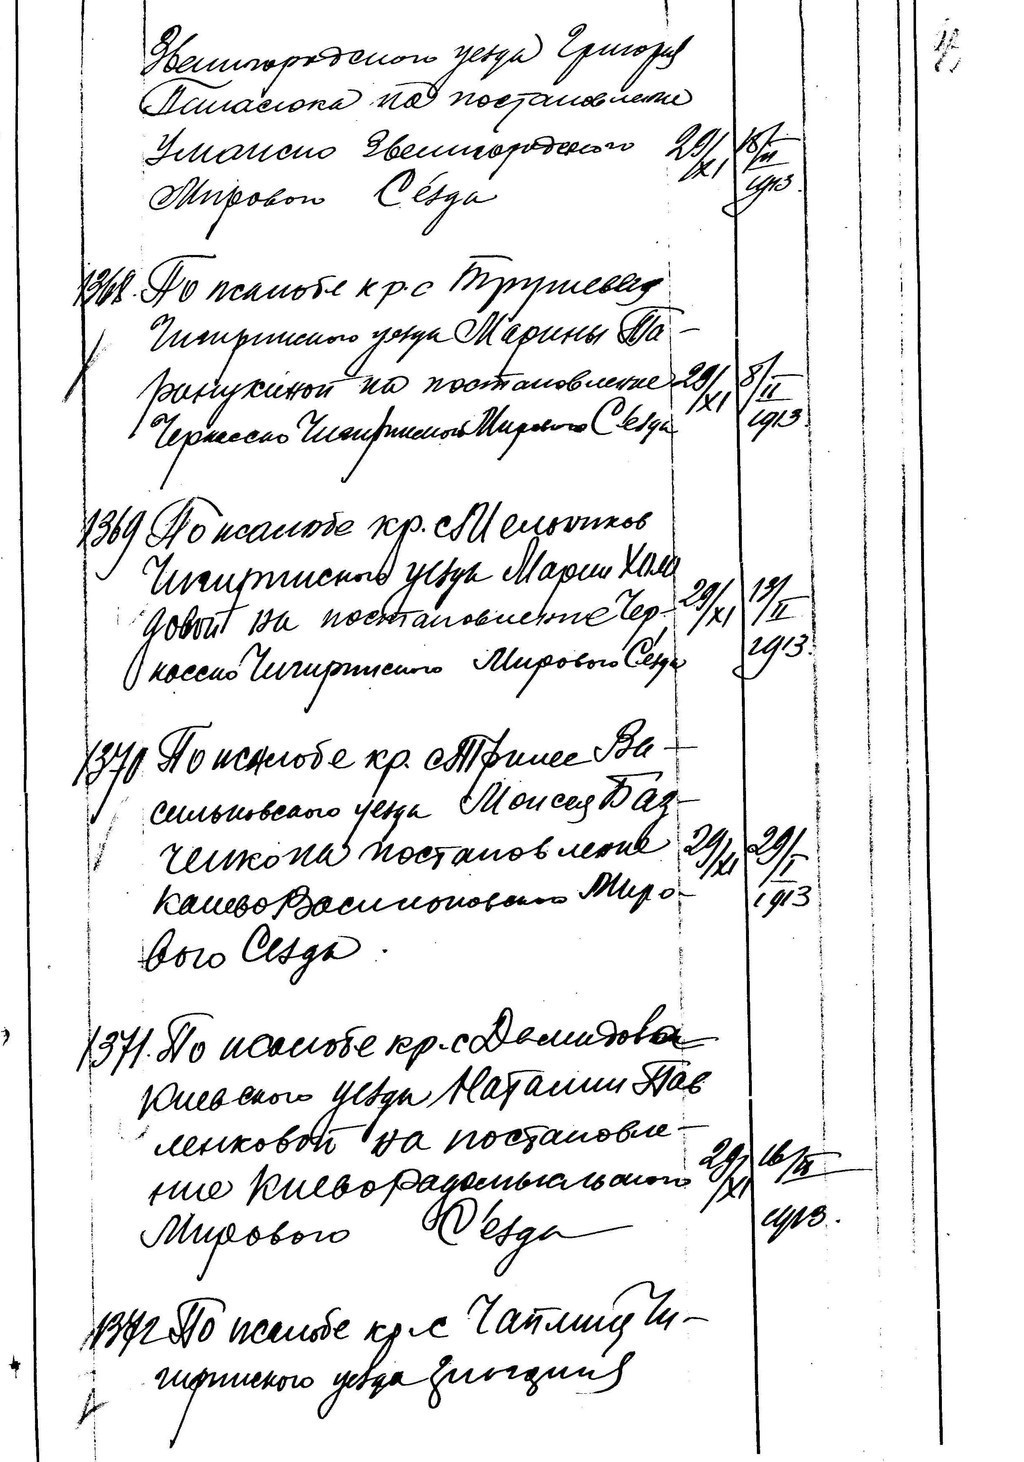 Звенигородского уезда Григория
Панасюка на постановление
Уманско Звенигородского 29/XI 18/II
Мирового Съезда 1913.
1368. По жалобе кр. с Трушевец
Чигиринского уезда Марины Та-
ранухиной на постановление 29/XI 8/II
Черкасско Чигиринского Мирового Съезда 1913.
1369 По жалобе кр. с Мельников
Чигиринского уезда Марии Холо
довой на постановление Чер- 29/XI 13/II
касско Чигиринского Мирового Съезда 1913.
1370 По жалобе кр. с Трилес Ва-
сильковского уезда Моисея Баз-
ченко на постановление 29/XI 29/I
Киево Васильковского Миро- 1913
вого Сезда.
1371. По жалобе кр. с Демидова
Киевского уезда Наталии Пав
ленковой на постановле-
ние Киево Радомысльского 29/XI 16/III
Мирового Съезда 1913.
1372 По жалобе кр. с Чаплищ Чи-
гиринского уезда